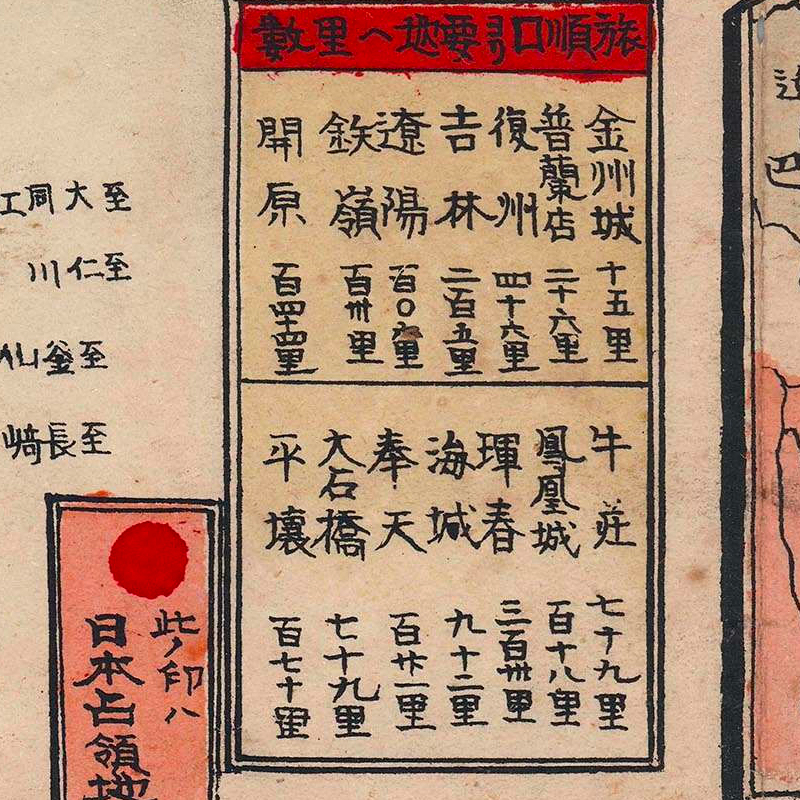 旅順口ヨリ要地ヘ里數
金州城 十五里
普蘭店 二十六里
復州 四十六里
吉林 二百五里
遼陽 百〇九里
鉄嶺 百卅里
開原 百四十四里
牛荘 七十九里
鳳凰城 百十八里
琿春 三百卅里
海城 九十二里
奉天 百廿一里
大石橋 七十九里
平壌 百七十里
至大同工
至仁川
至釜山
至長崎
此ノ印ハ
日本占領地